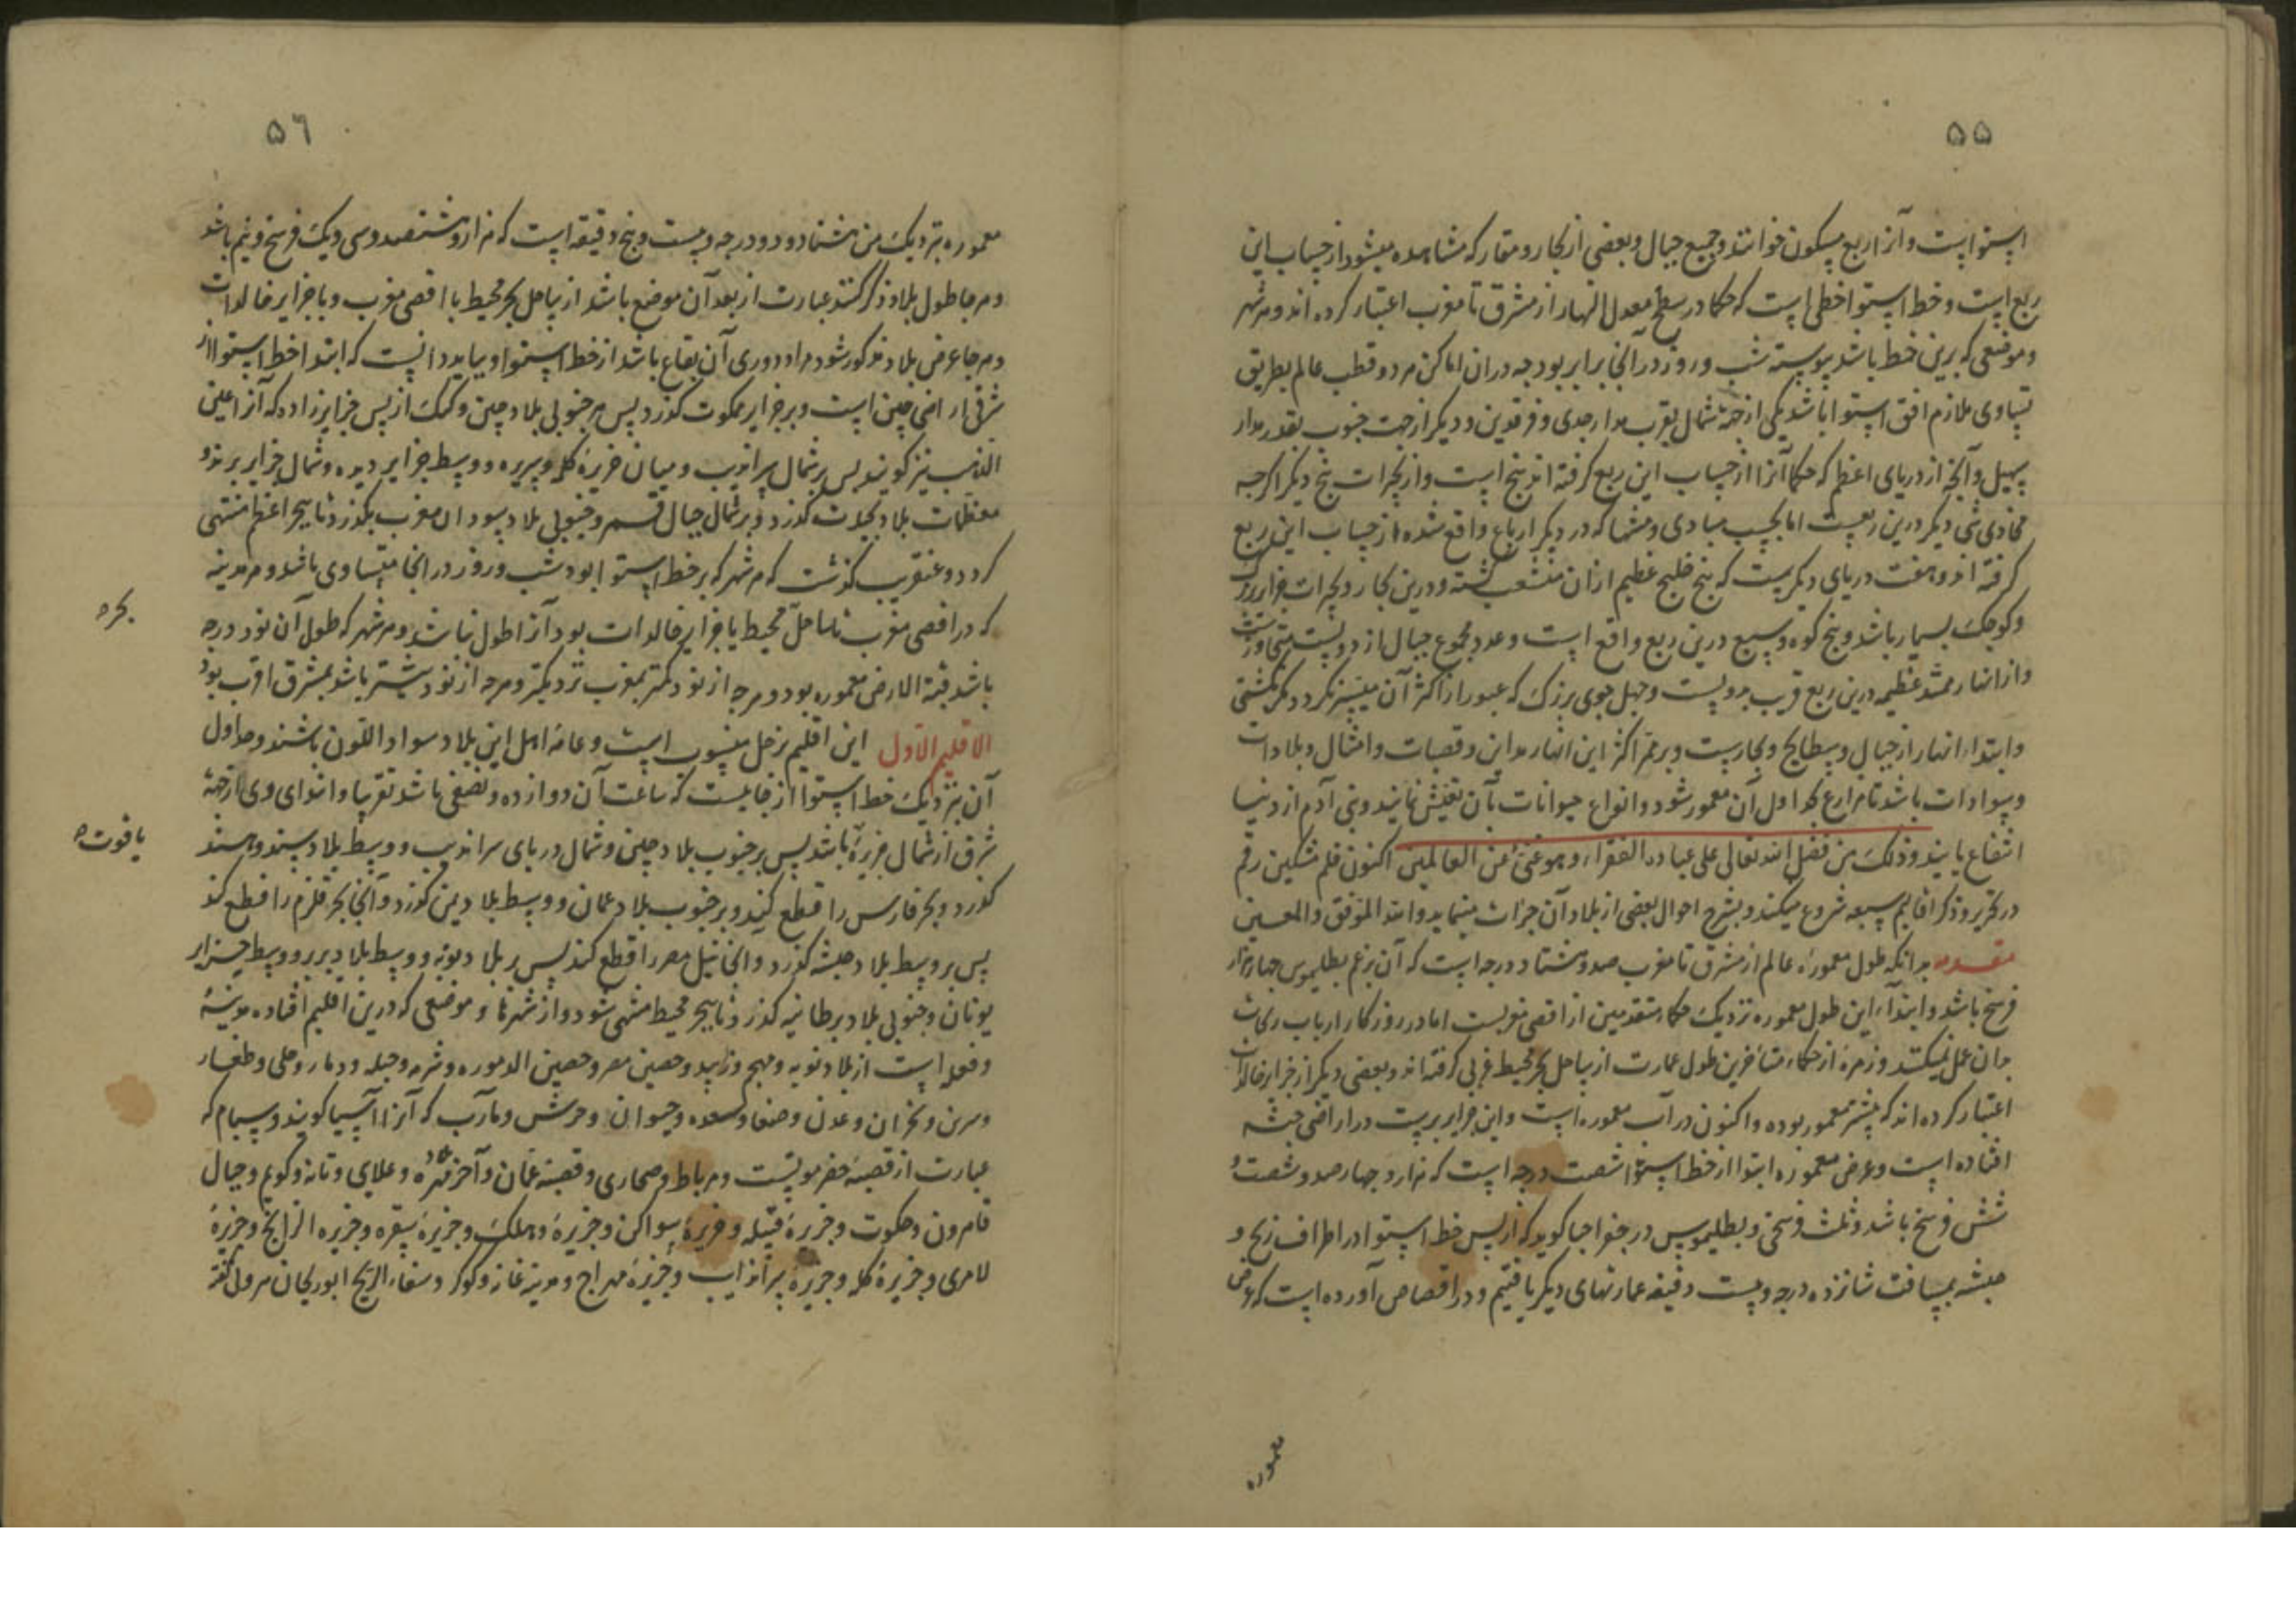 ۵۵
استواست و آنرا ربع مسکون خوانند و جمیع جبال و بعضی از بحار و مقار که مشاهده میشود از حساب این
ربع است و خط استوا خطی است که حکما در سطح معدل النهار از مشرق تا مغرب اعتبار کرده اند و هر شهر
و موضعی که برین خط باشد پیوسته شب و روز در آنجا برابر بود چه در ان اماکن هر دو قطب عالم بطریق
تساوی ملازم افق استوا باشد یکی از جهة شمال بقرب مدار جدی و فرقدین و دیگر از جهت جنوب بقدر مدار
سهیل و آنچه از دریای اعظم که حکما آنرا از حساب این ربع کرفته اند پنج است و از بحرات پنج دیکر اکرچه
محاذی شی دیکر درین ربعست اما بحسب مبادی و منشا که در دیکر ارباع واقع شده از حساب این ربع
کرفته اند و هفت دریای دیکرست که پنج خلیج عظیم ازان منشعب کشته و درین بحار و بحرات جزایر بزرک
و کوچک بسیار باشد و پنج کوه وسیع درین ربع واقع است و عدد مجموع جبال از دویست متجاوزست
و از انهار عظیمه درین ربع قریب بدویست و چهل جوی بزرک که عبور از اکثر آن میسر نکردد مکر بکشتی
و ابتداء انهار از جبال و بطایح و بحارست و بر ممر اکثر این انهار مداین و قصبات و امثال و بلادات
و سوادات باشد تا مزارع جداول آن معمور شود و انواع حیوانات بآن تعیش نمایند و بنی آدم از دنیا
انتفاع یابند و ذلک من فضل الله تعالی علی عباده الفقراء و هو غنی عن العالمین اکنون قلم مشکین رقم
در تحریر و ذکر اقالیم سبعه شروع میکند و بشرح احوال بعضی از بلاد آن جرات مینماید و الله الموفق و المعین
مقدمه بدانکه طول معموره عالم از مشرق تا مغرب صد و هشتاد درجه است که آن بزعم بطلیموس چهار هزار
فرسخ باشد و ابتداء این طول معموره نزدیک حکماء متقدمین از اقصی مغربست اما در روزکار ارباب
بدان عمل نمیکنند و زمره از حکماء متأخرین طول عمارت از ساحل بحر محیط غربی کرفته اند و بعضی دیکر از جزایر خالدات
اعتبار کرده اند که پیشتر معمور بوده و اکنون در آب مغموره است و این جزایر بریست در اراضی حبشه
افتاده است و عرض معموره ابتدا از خط استوا شصت درجه است که هزار و چهارصد و شصت و
شش فرسخ باشد و ثلث فرسخی و بطلیموس در جغرافیا کوید که از پس خط استوا در اطراف زنج و
حبشه بمسافت شانزده درجه و بیست دقیقه عمارتهای دیکر یافتیم و در اقصاص آورده است که عرض
معموره
۵٦
معموره بنزدیک من هشتاد و دو درجه و بیست و پنج دقیقه است که هزار و ششصد و سی و یک فرسخ و نیم باشد
و هر جا طول بلاد ذکر کنند عبارت از بعد آن موضع باشد از ساحل بحر محیط با اقصی مغرب و یا جزایر خالدات
و هر جا عرض بلاد مذکور شود مراد دوری آن بقاع باشد از خط استوا و بباید دانست که ابتداء خط استوا از
شرقی اراضی چین است و بر جزایر کذرد پس بر جنوبی بلاد چین و کنک از پس جزایر زاده که آنرا عین
الذهب نیز کویند پس بر شمال سراندیب و میان جزیره کله و سریره و وسط جزایر دیره و شمال جزایر بربر و
معظمات بلاد کذرد و بر شمال جبال قمر و جنوبی بلاد سودان مغرب بکذرد تا ببحر اعظم منتهی
کردد و عنقریب کذشت که هر شهر که بر خط استوا بود شب و روز در آنجا متساوی باشد و هر مدینه
که در اقصی مغرب تا ساحل محیط یا جزایر خالدات بود آنرا طول نباشد و هر شهر که طول آن نود درجه
باشد قبة الارض معموره بود و هر چه از نود کمتر بمغرب نزدیکتر و هر چه از نود بیشتر باشد بمشرق اقرب بود
الاقلیم الاول این اقلیم بزحل منسوب است و عامه اهل این بلاد سواد اللون باشند و حد اول
آن بنزدیک خط استوا از جاییست که ساعت آن دوازده و نصفی باشد تقریبا و ابتدای وی از جهة
شرق از شمال جزیره باشد پس بر جنوب بلاد چین و شمال دریای سراندیب و وسط بلاد سند و هند
کذرد و بحر فارس را قطع کند و بر جنوب بلاد عمان و وسط بلاد یمن کذرد و آنجا بحر قلزم را قطع کند
پس بر وسط بلاد حبشه کذرد و آنجا نیل مصر را قطع کند پس بر بلاد نوبه و وسط بلاد بربر و وسط جزایر
یونان و جنوبی بلاد برطانیه کذرد تا ببحر محیط منتهی شود و از شهرها و موضعی که درین اقلیم افتاده مدینه
و است از بلاد نوبه و مهجم و زبید و حصین مصر و حصین الدموره و شرمه و جبله و دمار و حلی و ظفار
و سرین و نجران و عدن و صنعا و صعده و خیوان و جرش و مآرب که آنرا سبا کویند و شبام که
عبارت از قصبه حضرموتست و مرباط و صحاری و قصبه عمان و آخر مهره و علای و تانه و کویم و جبال
قامرون و و جزیره و جزیره سواکن و جزیره دهلک و جزیره سقره و جزیره الزابج و جزیره
لامری و جزیره کله و جزیره سراندیب و جزیره مهراج و مدینه غانه و کوکو و ابوریحان
بحره
یاقوت